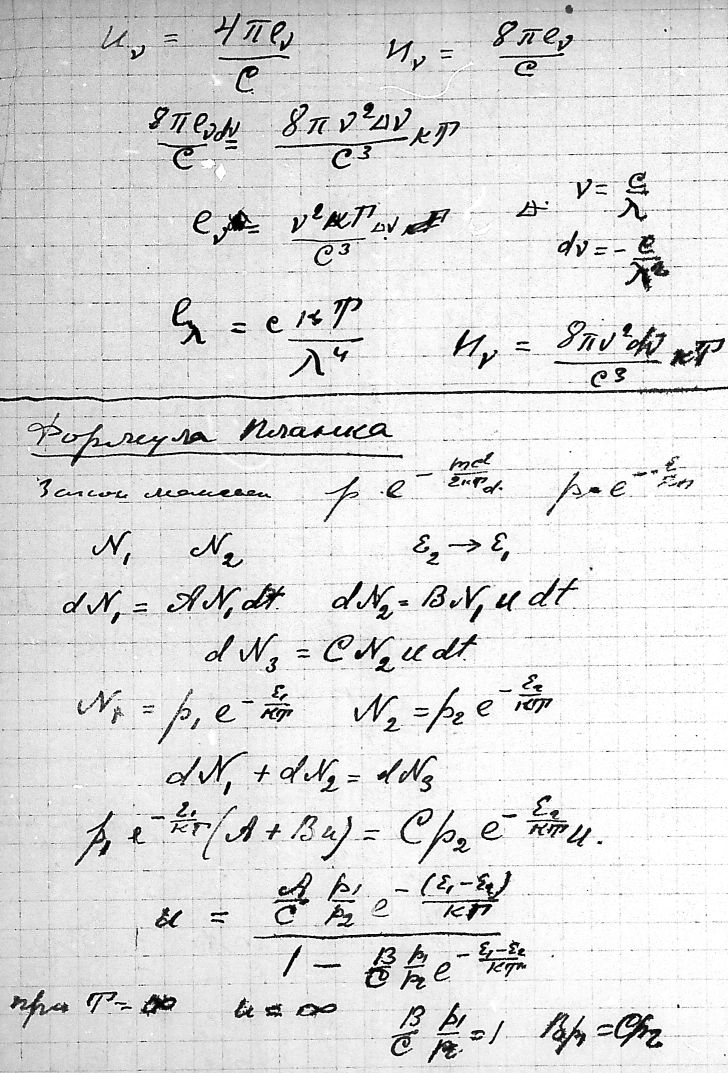 u_ν = 4πe_ν/c     u_ν = 8πe_ν/c
8πe_ν dν/c = 8πν²Δν/c³ кТ
e_ν = ν²кТ/c³ Δν     ν = c/λ
dν = - c/λ²
e_λ = c кТ/λ⁴     u_ν = 8πν²dν/c³ кТ
Формула Планка
Закон     p e^     p = e^
N₁  N₂     ε₂ → ε₁
dN₁ = AN₁dt.  dN₂ = BN₁ u dt
dN₃ = CN₂ u dt.
N₁ = p₁ e^(-ε₁/кТ)   N₂ = p₂ e^(-ε₂/кТ)
dN₁ + dN₂ = dN₃
p₁ e^(-ε₁/кТ) (A + Bu) = Cp₂ e^(-ε₂/кТ) u.
u = (A/C p₁/p₂ e^(-(ε₁-ε₂)/кТ)) / (1 - B/C p₁/p₂ e^(-(ε₁-ε₂)/кТ))
при T = ∞   u = ∞   B/C p₁/p₂ = 1   Bp₁ = Cp₂